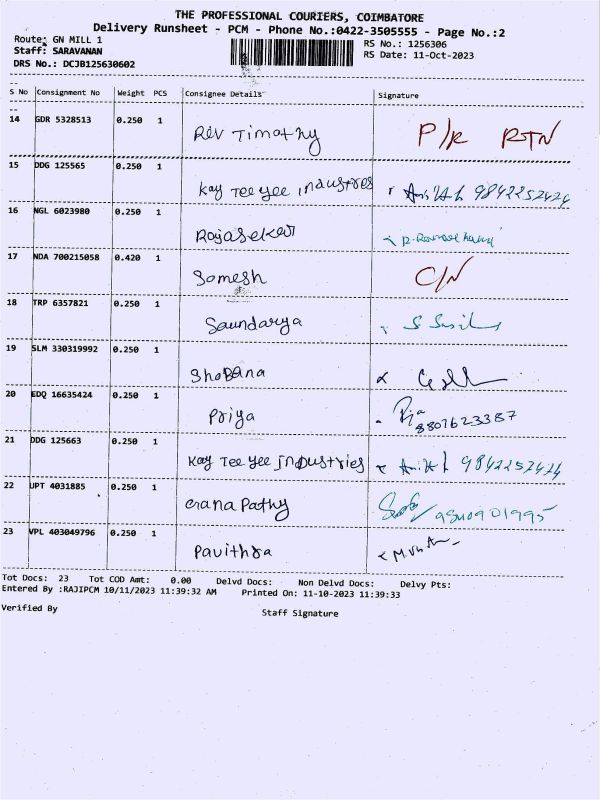 THE PROFESSIONAL COURIERS, COIMBATORE
Delivery Runsheet - PCM - Phone No.:0422-3505555 - Page No.:2
Route: GN MILL 1 RS No.: 1256306
Staff: SARAVANAN RS Date: 11-Oct-2023
DRS No.: DCJB125630602
S No Consignment No Weight PCS Consignee Details Signature
14 GDR 5328513 0.250 1 Rev Timothy P/R RTN
15 DDG 125565 0.250 1 Kay Tee yee industries 9842252424
16 NGL 6023980 0.250 1 Rajasekar
17 NDA 700215058 0.420 1 Somesh C/N
18 TRP 6357821 0.250 1 Saundarya
19 SLM 330319992 0.250 1 Shobana
20 EDQ 16635424 0.250 1 Priya
8807623387
21 DDG 125663 0.250 1 Kay Tee yee industries
22 UPT 4031885 0.250 1
23 VPL 403049796 0.250 1 Pavithra
Tot Docs: 23 Tot COD Amt: 0.00 Delvd Docs: Non Delvd Docs: Delvy Pts:
Entered By :RAJIPCM 10/11/2023 11:39:32 AM Printed On: 11-10-2023 11:39:33
Verified By Staff Signature